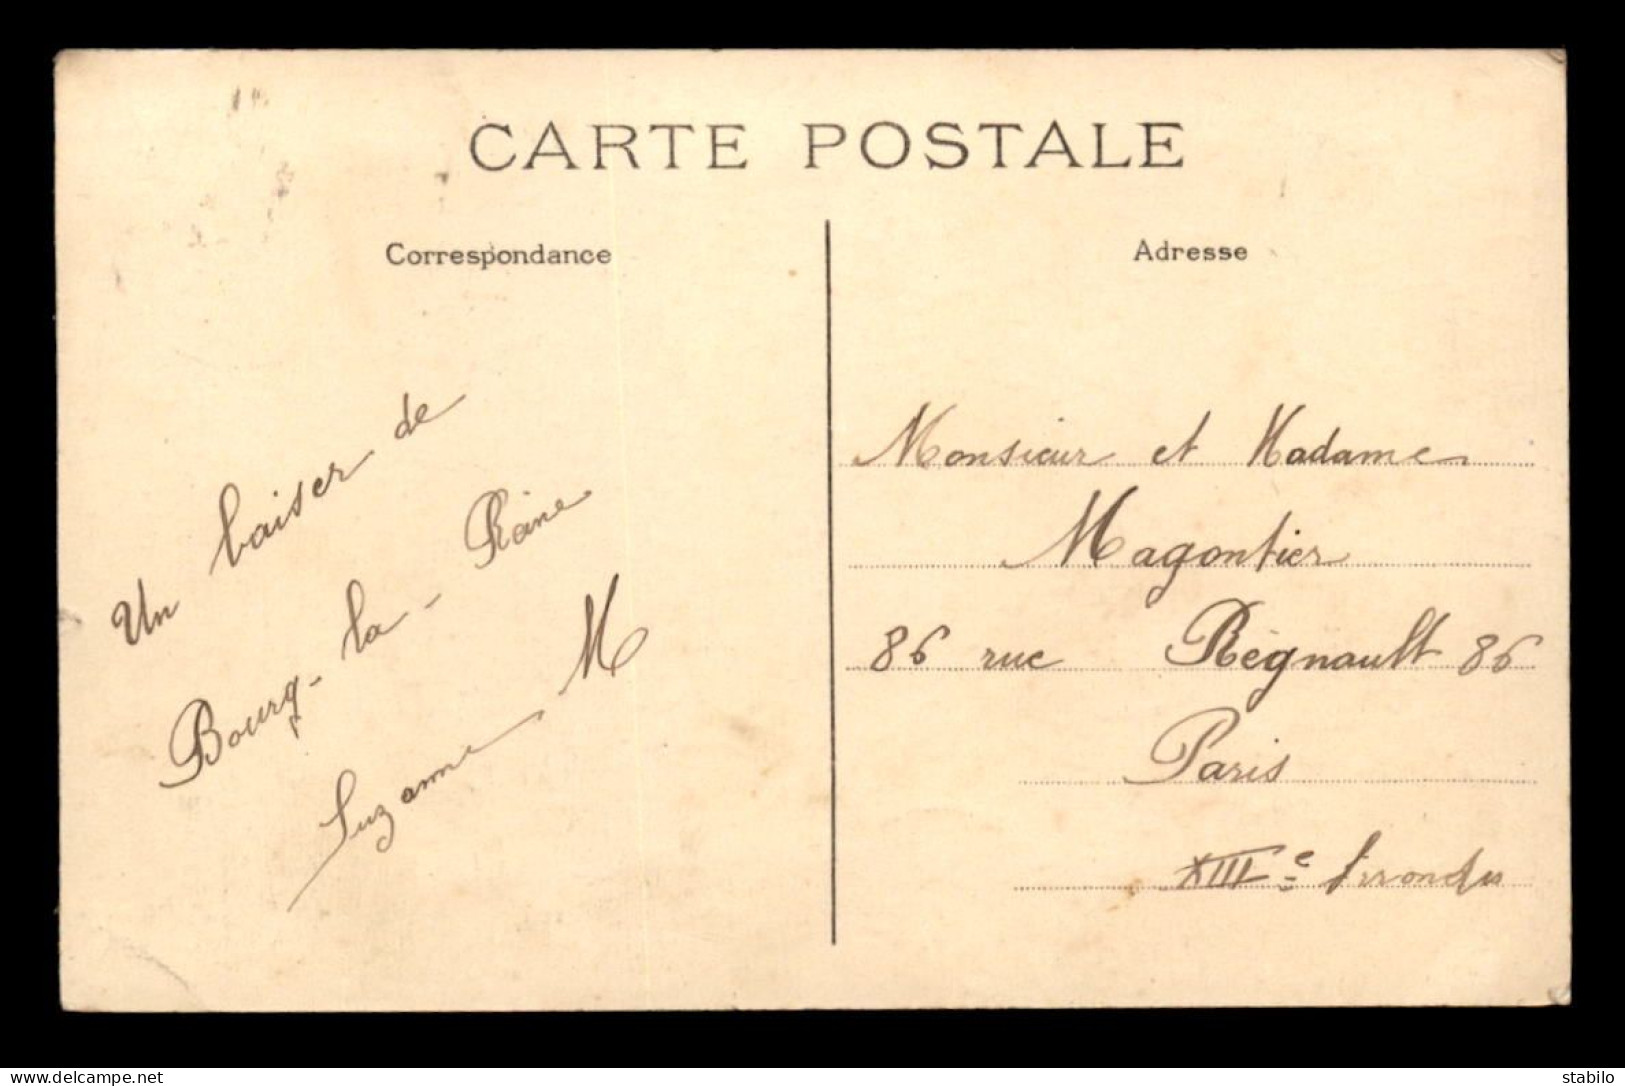 CARTE POSTALE
Correspondance
Un baiser de
Bourg-la-Reine
Suzanne M
Adresse
Monsieur et Madame
Magontier
86 rue Régnault 86
Paris
XIIIe
the-west-indies.delcampe.net
stabilo